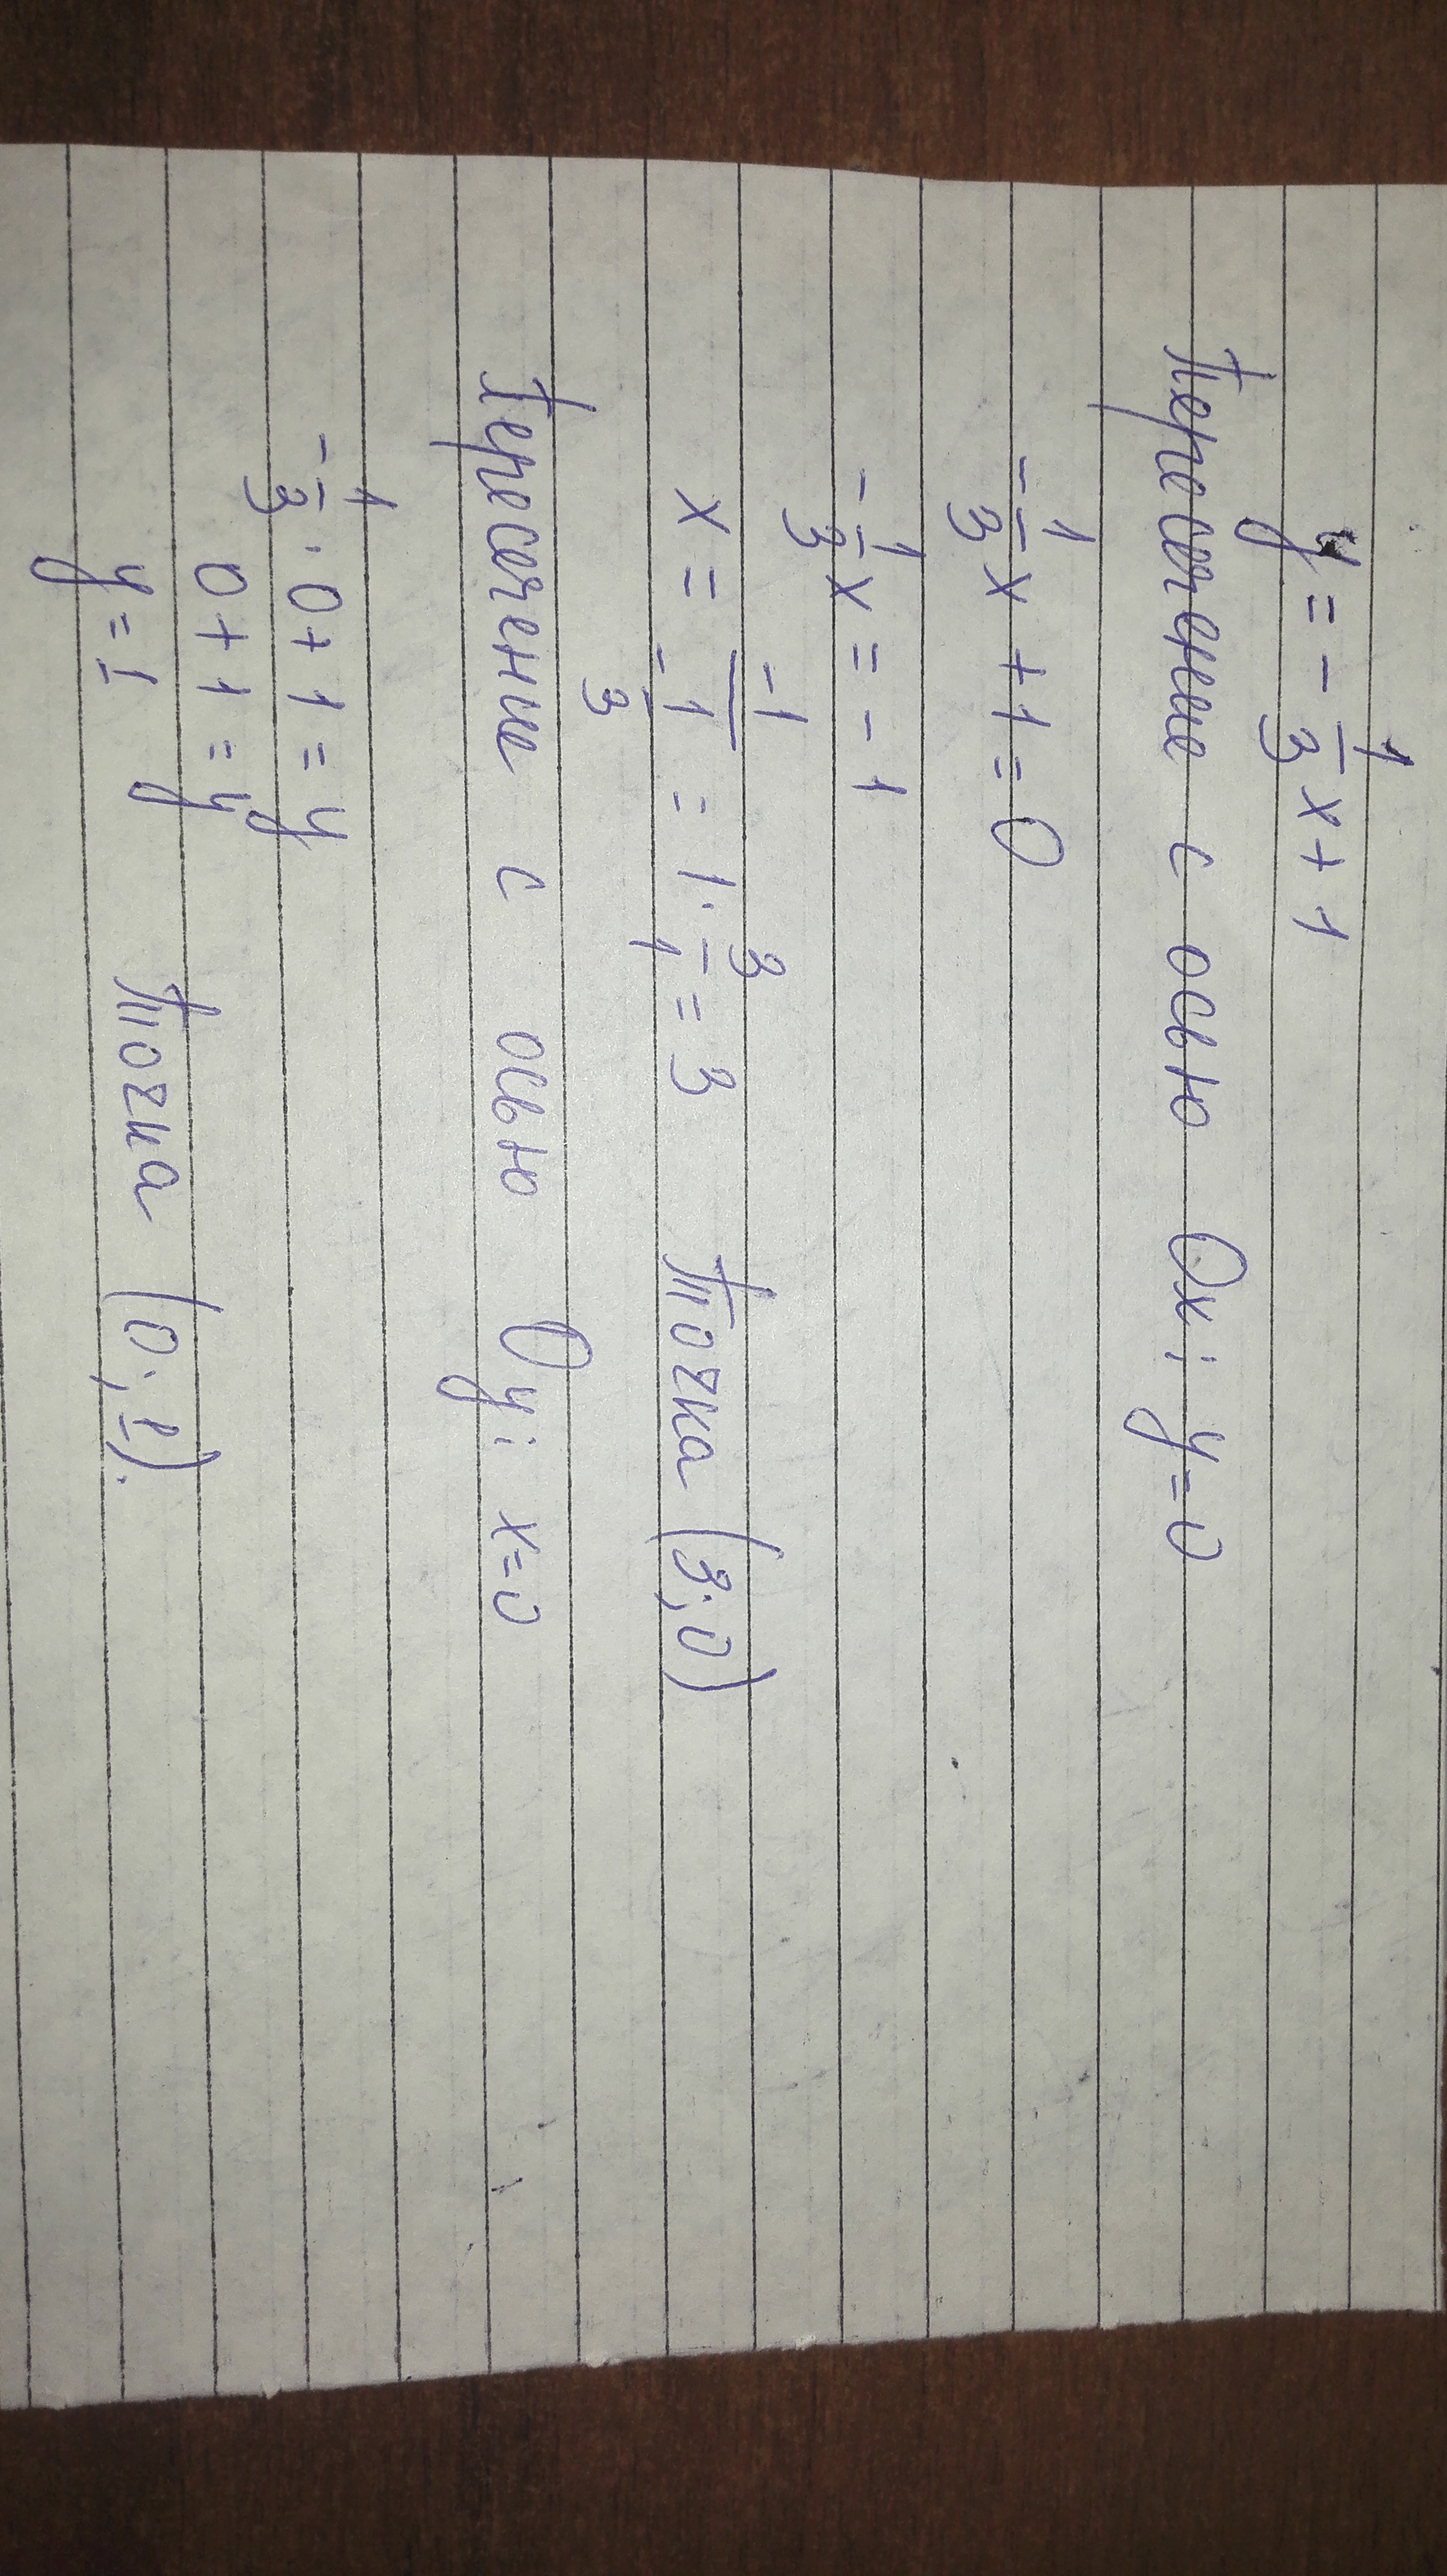 y = - 1/3 x + 1
Пересечение с осью Ox: y=0
- 1/3 x + 1 = 0
- 1/3 x = - 1
x = -1/(-1/3) = 1 · 3/1 = 3 точка (3; 0)
Пересечение с осью Oy: x=0
- 1/3 · 0 + 1 = y
0 + 1 = y
y = 1 точка (0; 1).